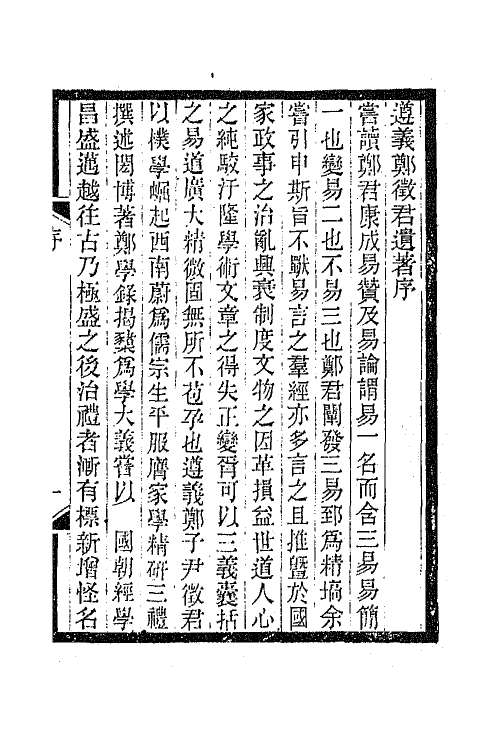 遵義鄭徵君遺著序
嘗讀鄭君康成易贊及易論謂易一名而含三易易簡
一也變易二也不易三也鄭君闡發三易郅爲精塙余
嘗引申斯旨不獸易言之羣經亦多言之且推曁於國
家政事之治亂興衰制度文物之因革損益世道人心
之純駮汙隆學術文章之得失正變胥可以三義囊括
之易道廣大精微固無所不苞孕也遵義鄭子尹徵君
以樸學崛起西南蔚爲儒宗生平服膺家學精研三禮
撰述閎博著鄭學錄揭櫫爲學大義嘗以　國朝經學
昌盛邁越往古乃極盛之後治禮者漸有標新增怪名
序
一